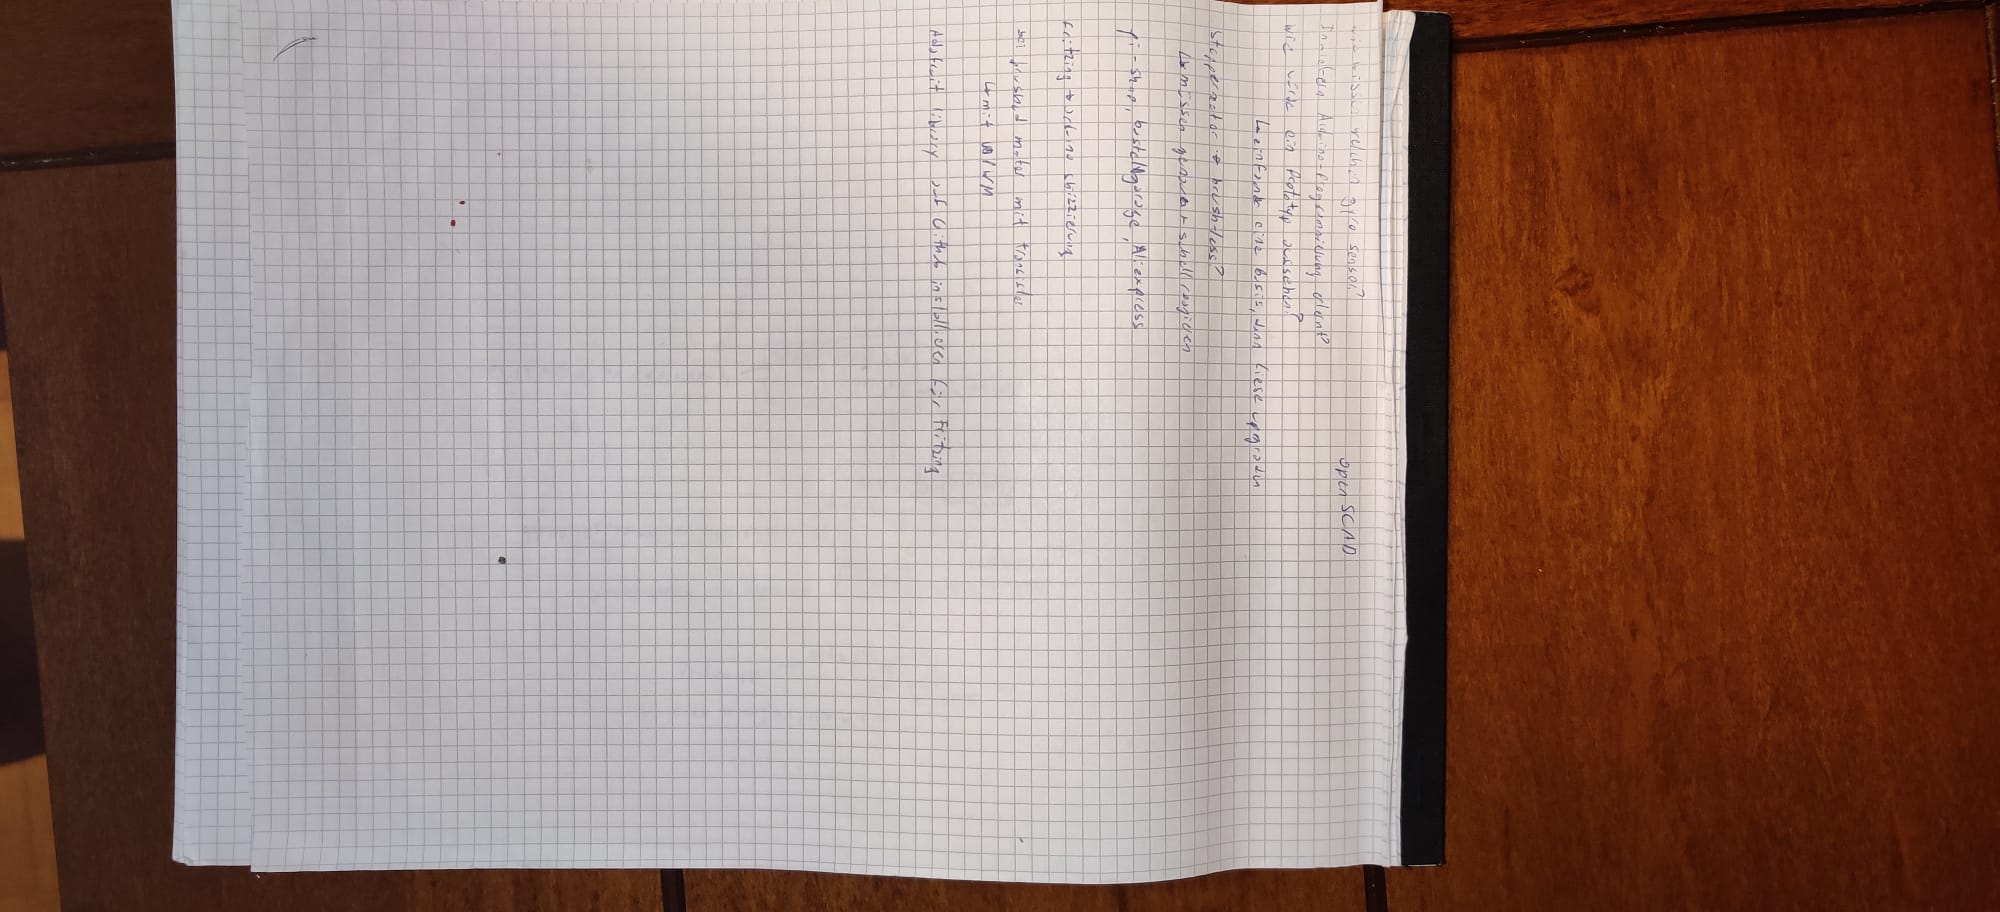 wie wissen welchen gyro sensor?
In welchem Arduino-Programmierung erlernt?
wie würde ein Prototyp aussehen?
openSCAD
↳ einfache eine basis, dann diese upgraden
Steppermotor → brush-less?
↳ müssen genauer + schnell reagieren
pi-shop, bastelgarage, Aliexpress
fritzing → arduino skizzierung
bei brushed motor mit transistor
↳ mit PWM
Adafruit library auf Github installieren für fritzing